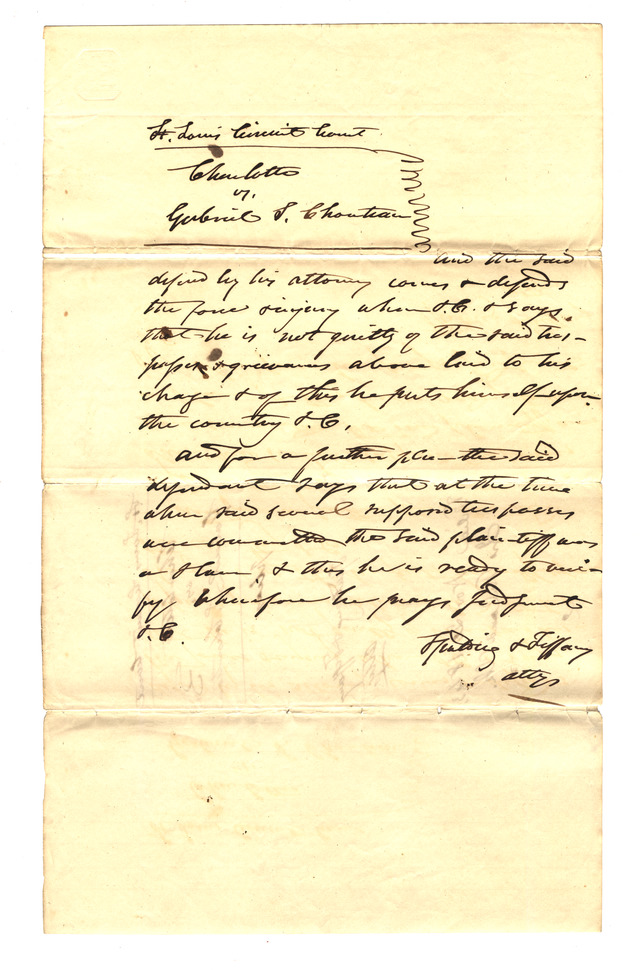 St. Louis Circuit Court
Charlotte
vs.
Gabriel S. Chouteau
And the said
defend by his attorney comes & defends
the force & injury when &.C. & says
that he is not guilty of the said tres-
passes & grievances above laid to his
charge & of this he puts himself upon
the country &.C.
And for a further plea the said
defendant says that at the time
when said several supposed trespasses
were committed the said plaintiff was
a Slave, & this he is ready to veri-
fy Wherefore he prays Judgment
&.C.
Spalding & Tiffany
attys